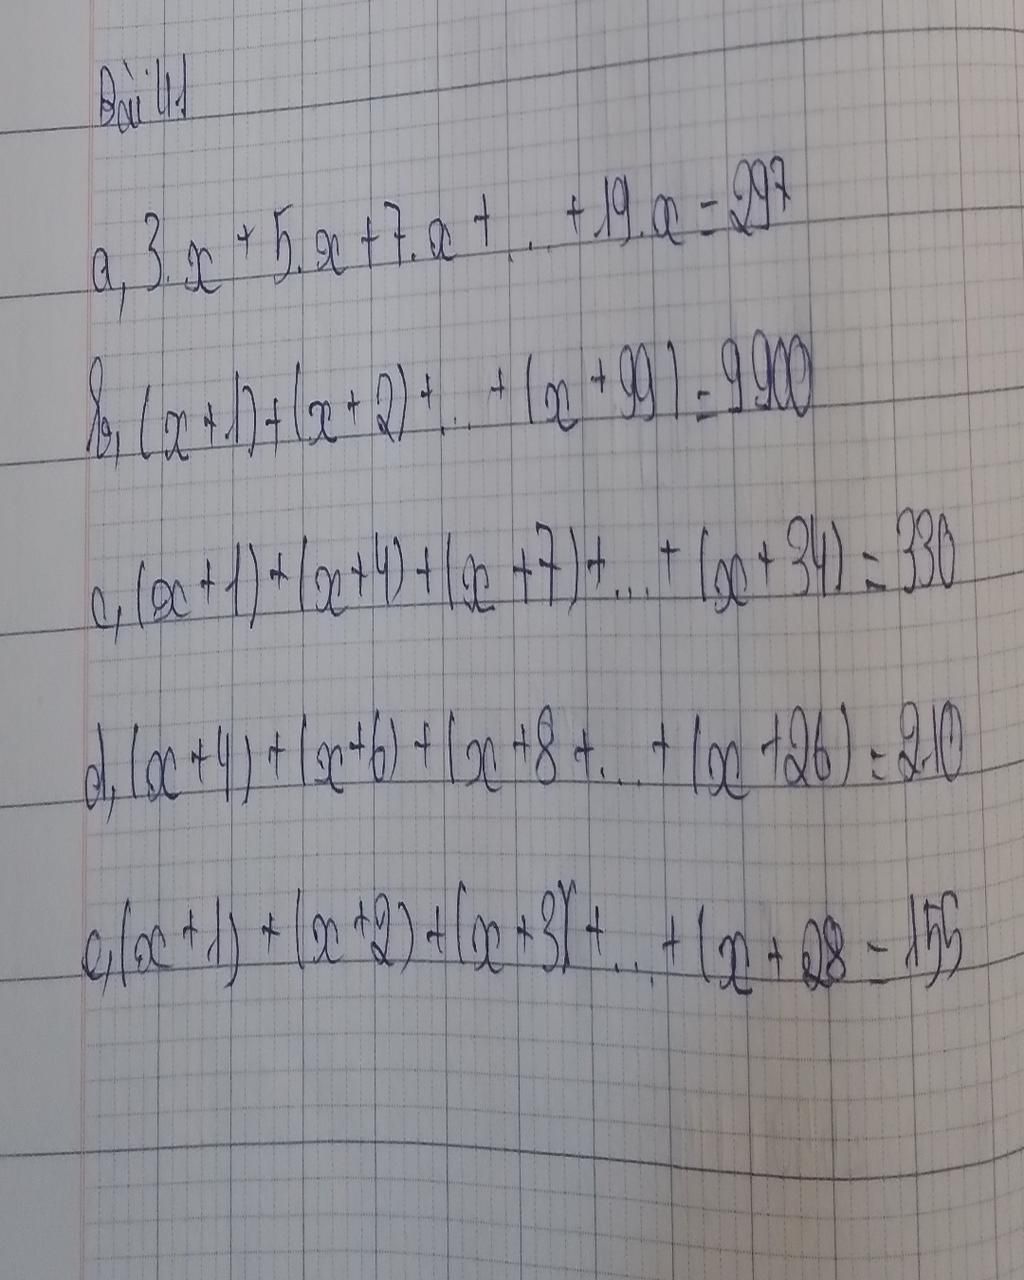 Bài 41
a, 3.x + 5.x + 7.x + ... + 19.x = 297
b, (x + 1) + (x + 2) + ... + (x + 99) = 9900
c, (x + 1) + (x + 4) + (x + 7) + ... + (x + 34) = 330
d, (x + 4) + (x + 6) + (x + 8 + ... + (x + 26) = 210
e, (x + 1) + (x + 2) + (x + 3) + ... + (x + 28 = 155